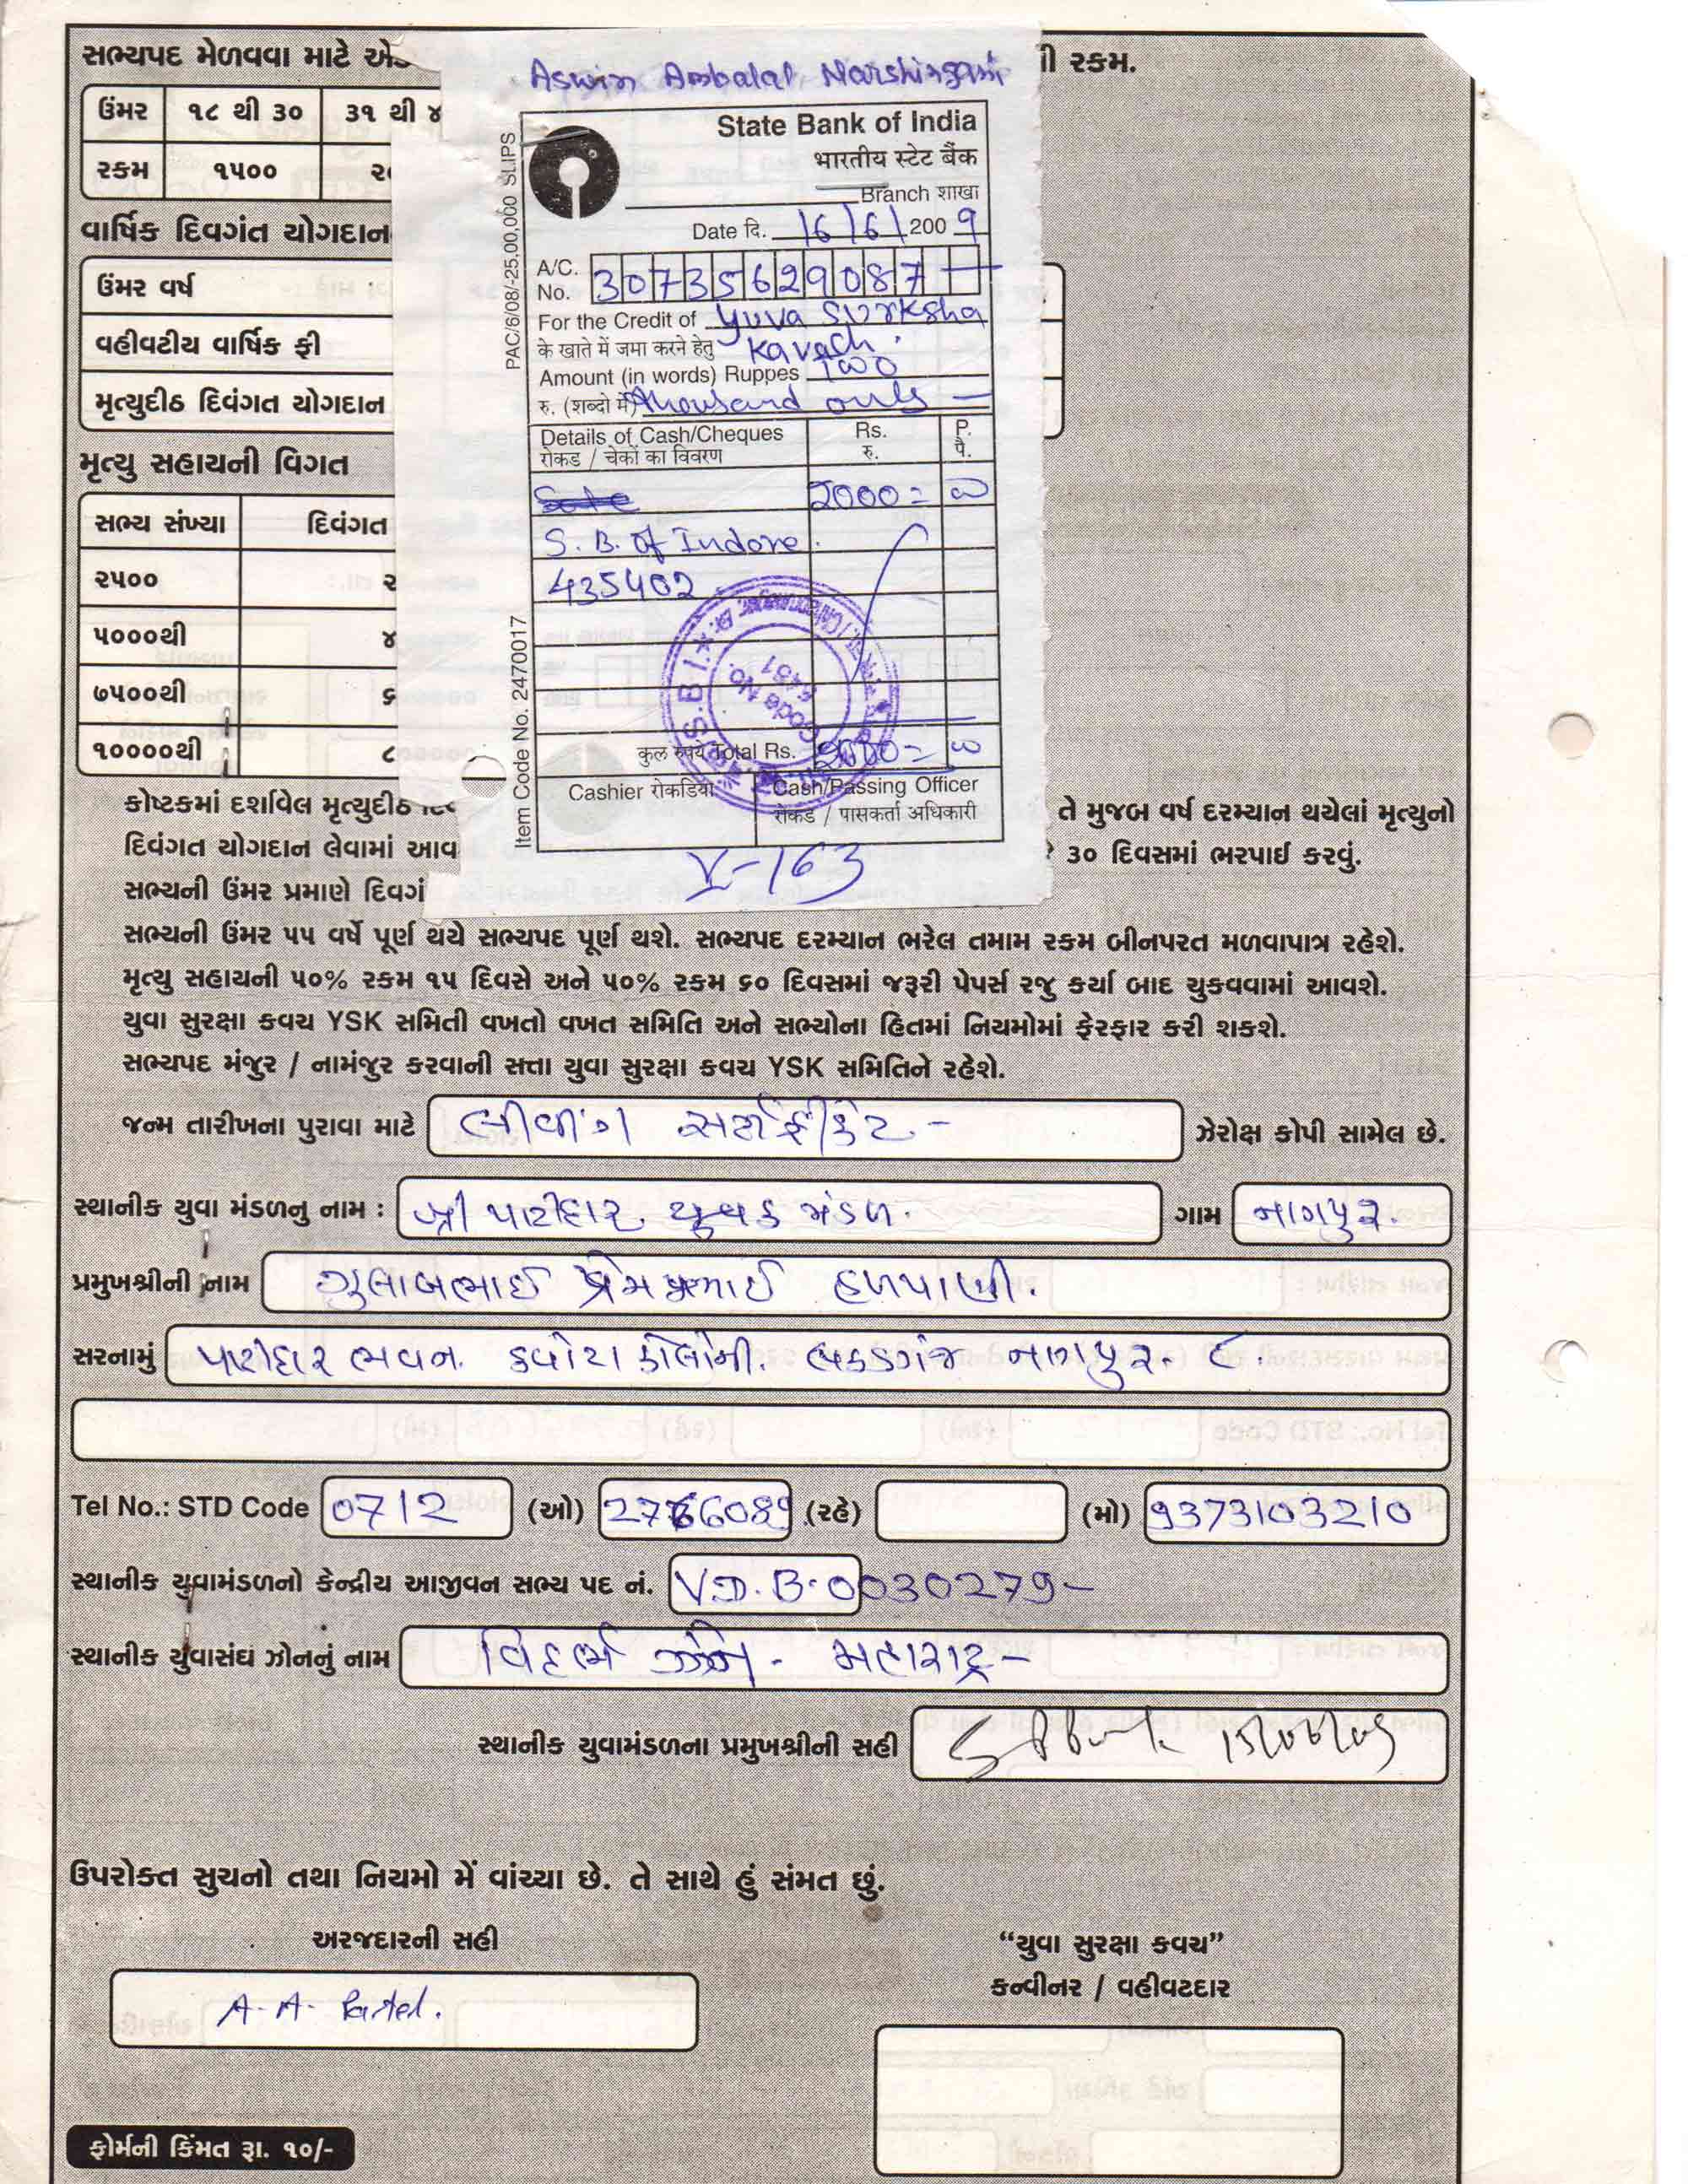 સભ્યપદ મેળવવા માટે
ી રકમ.
ઉંમર ૧૮ થી ૩૦ ૩૧ થી ૪
રકમ ૧૫૦૦
વાર્ષિક દિવગંત યોગદાન
ઉંમર વર્ષ
વહીવટીય વાર્ષિક ફી
મૃત્યુદીઠ દિવંગત યોગદાન
મૃત્યુ સહાયની વિગત
સભ્ય સંખ્યા દિવંગત
૨૫૦૦ ૨
૫૦૦૦થી ૪
૭૫૦૦થી ૬
૧૦૦૦૦થી ૮
Aswin Ambalal Narshingani
State Bank of India
भारतीय स्टेट बैंक
Branch शाखा
Date दि. 16/6/2009
A/C. No. 30735629087
For the Credit of Yuva Surksha
के खाते में जमा करने हेतु Kavach.
Amount (in words) Ruppes Two
रु. (शब्दो में) thousand only
Details of Cash/Cheques Rs. P.
रोकड / चेकों का विवरण रु. पै.
2000=00
S. B. of Indore.
435402
कुल रुपये Total Rs. 2000=00
Cashier रोकडिया Cash/Passing Officer
रोकड / पासकर्ता अधिकारी
PAC/6/08/-25,00,000 SLIPS
Item Code No. 2470017
S.B.I. Code No. 6491
V-163
કોષ્ટકમાં દર્શાવેલ મૃત્યુદીઠ
તે મુજબ વર્ષ દરમ્યાન થયેલાં મૃત્યુનો
દિવંગત યોગદાન લેવામાં આવ
૩૦ દિવસમાં ભરપાઈ કરવું.
સભ્યની ઉંમર પ્રમાણે દિવગં
સભ્યની ઉંમર ૫૫ વર્ષે પૂર્ણ થયે સભ્યપદ પૂર્ણ થશે. સભ્યપદ દરમ્યાન ભરેલ તમામ રકમ બીનપરત મળવાપાત્ર રહેશે.
મૃત્યુ સહાયની ૫૦% રકમ ૧૫ દિવસે અને ૫૦% રકમ ૬૦ દિવસમાં જરૂરી પેપર્સ રજુ કર્યા બાદ ચુકવવામાં આવશે.
યુવા સુરક્ષા કવચ YSK સમિતી વખતો વખત સમિતિ અને સભ્યોના હિતમાં નિયમોમાં ફેરફાર કરી શકશે.
સભ્યપદ મંજુર / નામંજુર કરવાની સત્તા યુવા સુરક્ષા કવચ YSK સમિતિને રહેશે.
જન્મ તારીખના પુરાવા માટે લીવીંગ સર્ટીફીકેટ - ઝેરોક્ષ કોપી સામેલ છે.
સ્થાનીક યુવા મંડળનુ નામ : શ્રી પાટીદાર યુવક મંડળ. ગામ નાગપુર.
પ્રમુખશ્રીની નામ ગુલાબભાઈ પ્રેમજીભાઈ હળપાણી.
સરનામું પાટીદાર ભવન. ક્વેટા કોલોની. લકડગંજ નાગપુર. ૮.
Tel No.: STD Code 0712 (ઓ) 2766089 (રહે) (મો) 9373103210
સ્થાનીક યુવામંડળનો કેન્દ્રીય આજીવન સભ્ય પદ નં. V.D.B.0030279-
સ્થાનીક યુવાસંઘ ઝોનનું નામ વિદર્ભ ઝોન - મહારાષ્ટ્ર -
સ્થાનીક યુવામંડળના પ્રમુખશ્રીની સહી
ઉપરોક્ત સુચનો તથા નિયમો મેં વાંચ્યા છે. તે સાથે હું સંમત છું.
અરજદારની સહી
A. A. Patel.
“યુવા સુરક્ષા કવચ”
કન્વીનર / વહીવટદાર
ફોર્મની કિંમત રૂા. ૧૦/-